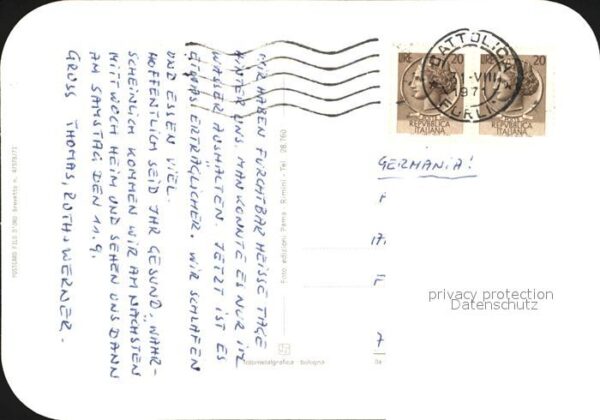 WIR HABEN FURCHTBAR HEISSE TAGE
HINTER UNS. MAN KONNTE ES NUR IM
WASSER AUSHALTEN. JETZT IST ES
ETWAS ERTRÄGLICHER. WIR SCHLAFEN
UND ESSEN VIEL.
HOFFENTLICH SEID IHR GESUND, WAHR-
SCHEINLICH KOMMEN WIR AM NÄCHSTEN
MITTWOCH HEIM UND SEHEN UNS DANN
AM SAMSTAG DEN 11.9.
GRUSS THOMAS, RUTH + WERNER.
LIRE 20
POSTE
REPUBBLICA
ITALIANA
LIRE 20
POSTE
REPUBBLICA
ITALIANA
CATTOLICA
31-VIII
1971
FORLI
GERMANIA!
privacy protection
Datenschutz
Foto edizioni Penna - Rimini - Tel.
fotometalgrafica - bologna